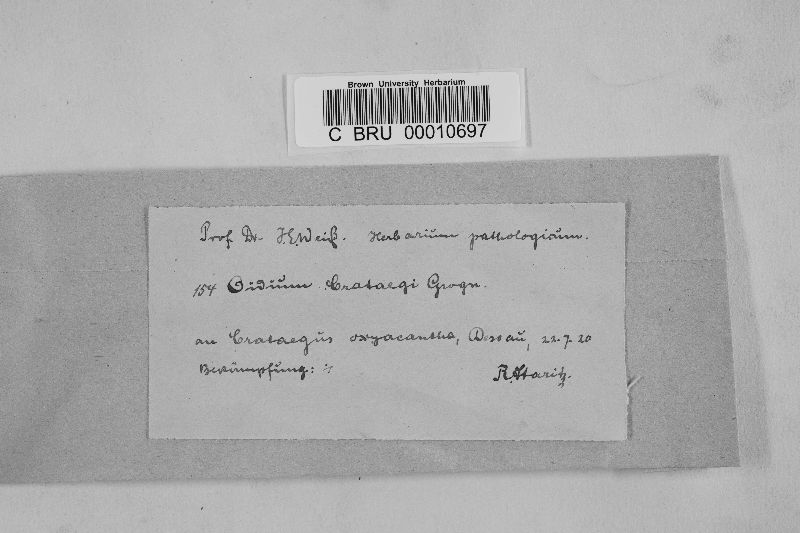 Brown University Herbarium
C BRU 00010697
Prof. Dr. J.E.Weiß. Herbarium pathologicum.
154 Oidium Crataegi Grogn.
an Crataegus oxyacantha, Dessau, 22.7.20
Bekämpfung: ?
R. Staritz.